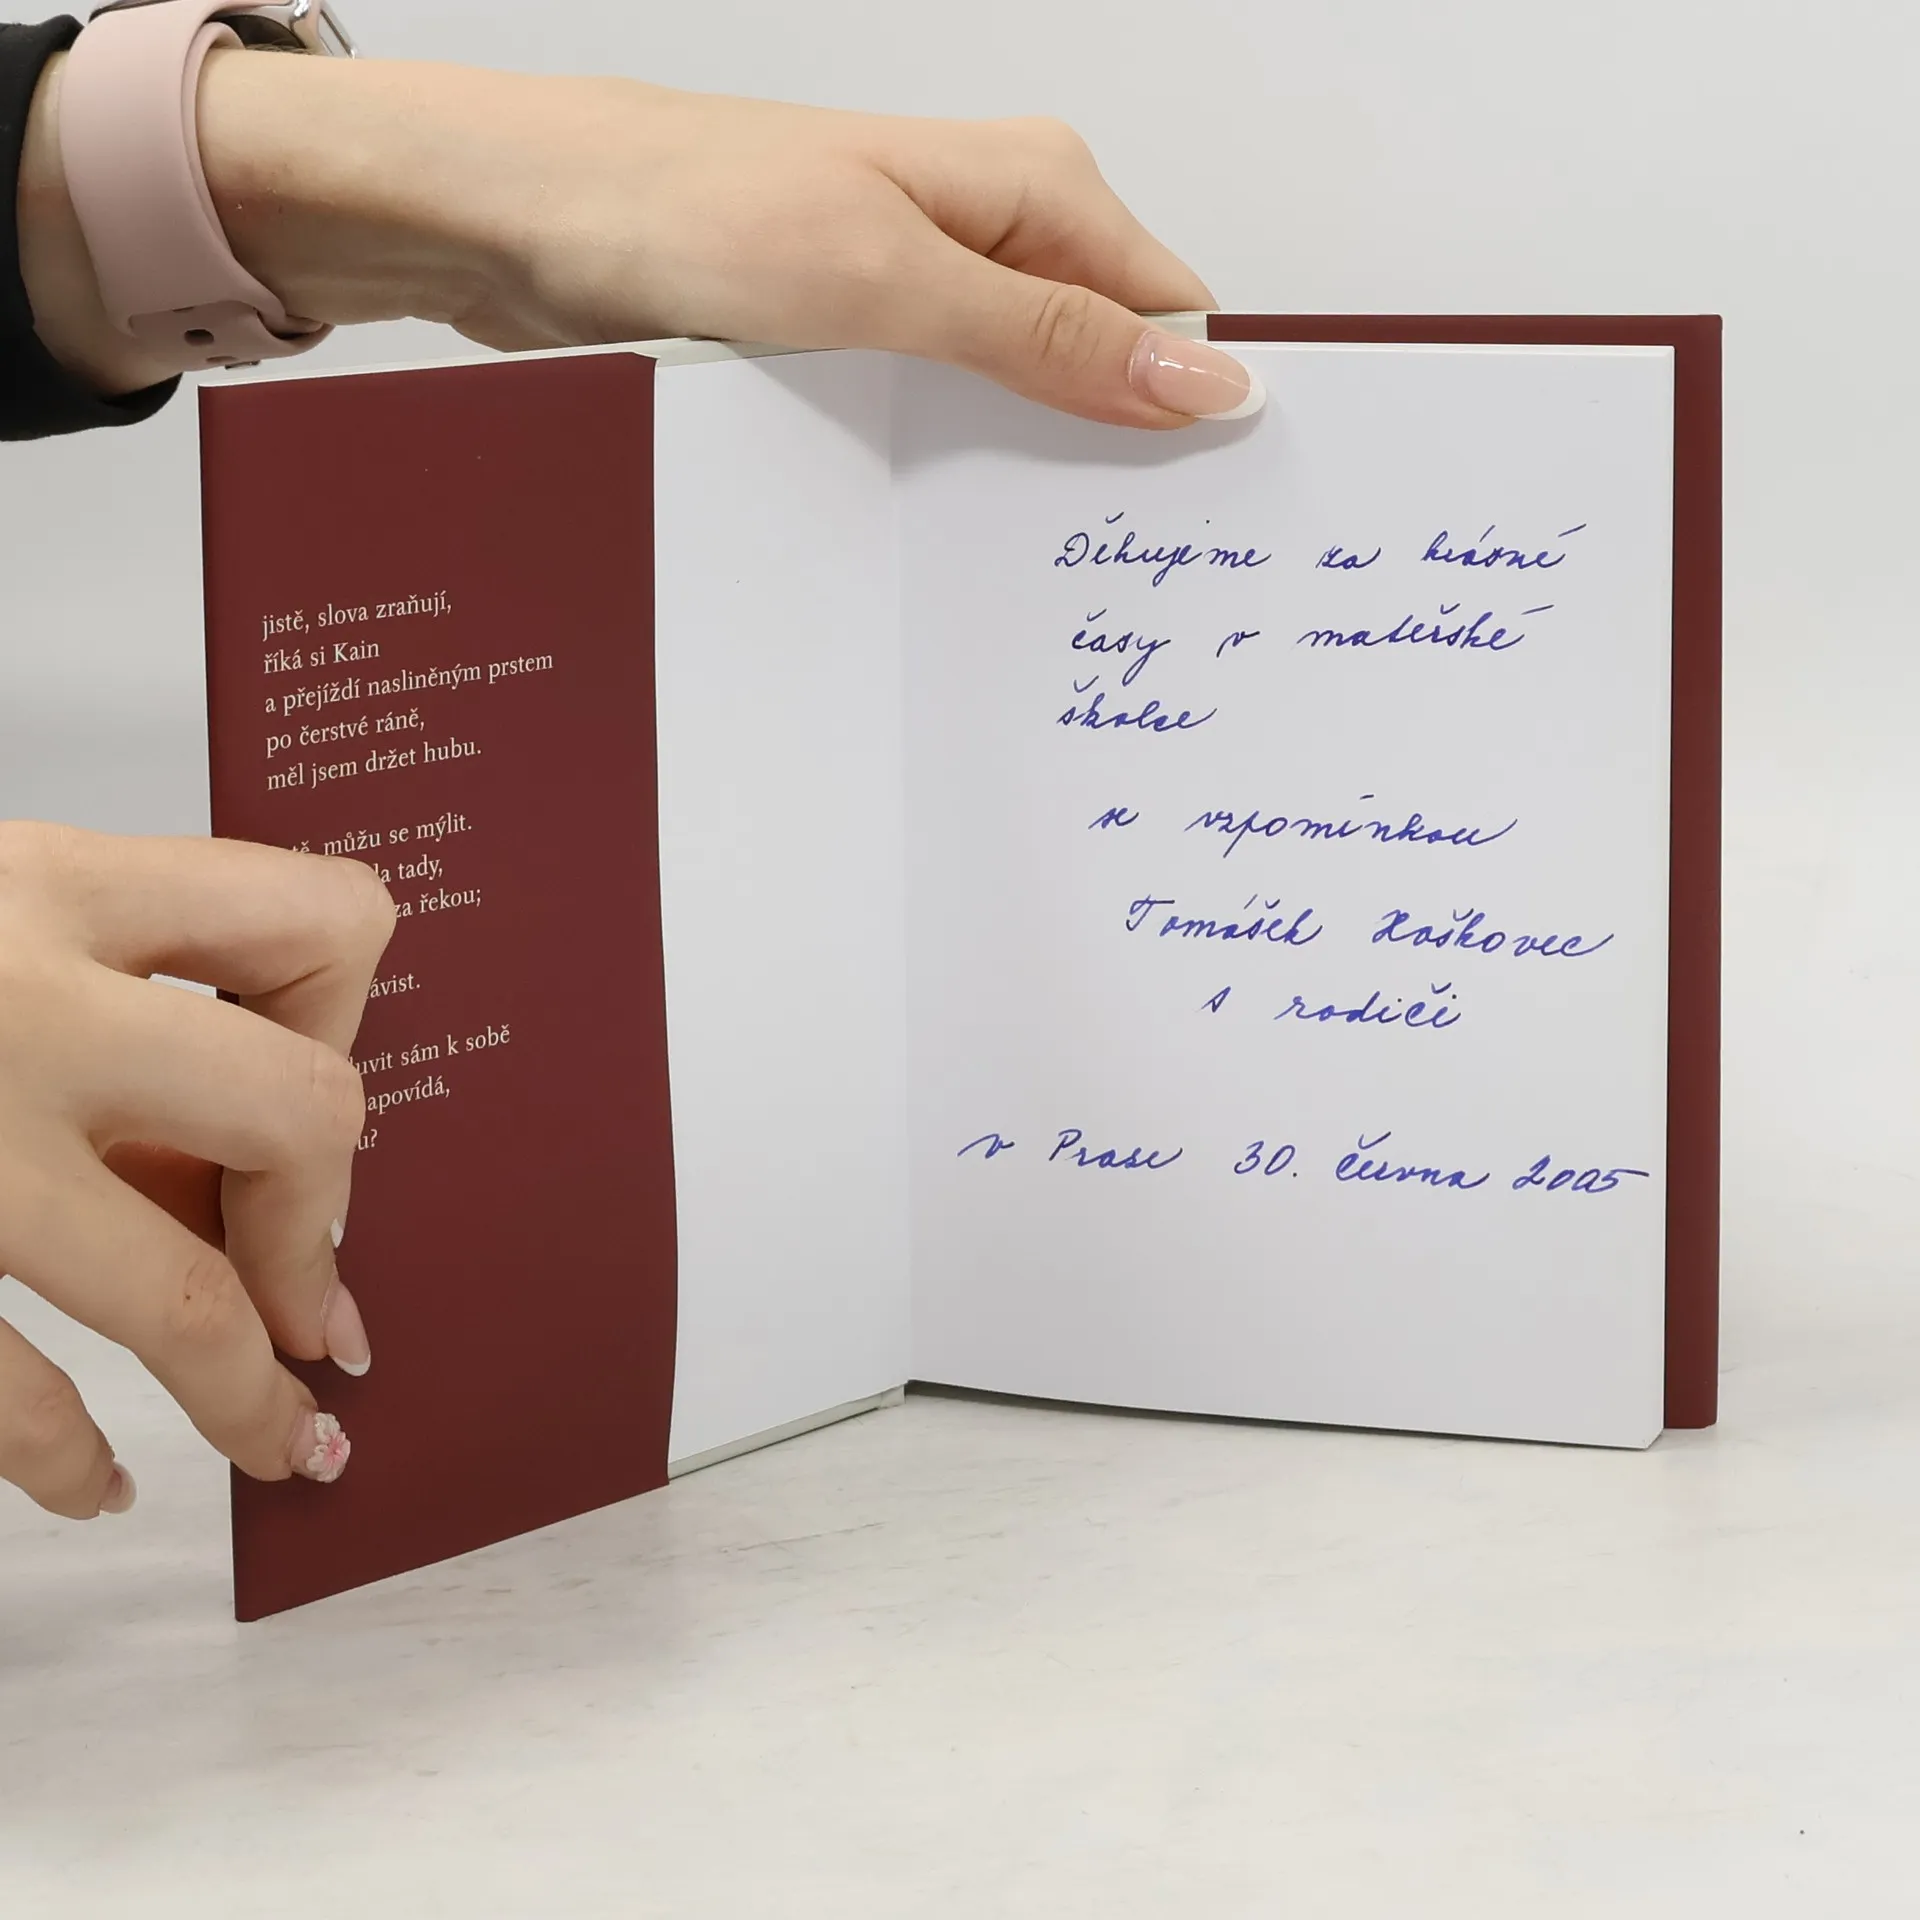 jistě, slova zraňují,
říká si Kain
a přejíždí nasliněným prstem
po čerstvé ráně,
měl jsem držet hubu.
můžu se mýlit.
tady,
za řekou;
sám k sobě
Děkujeme za krásné
časy v mateřské
školce
se vzpomínkou
Tomášek Haškovec
s rodiči
v Praze 30. června 2005